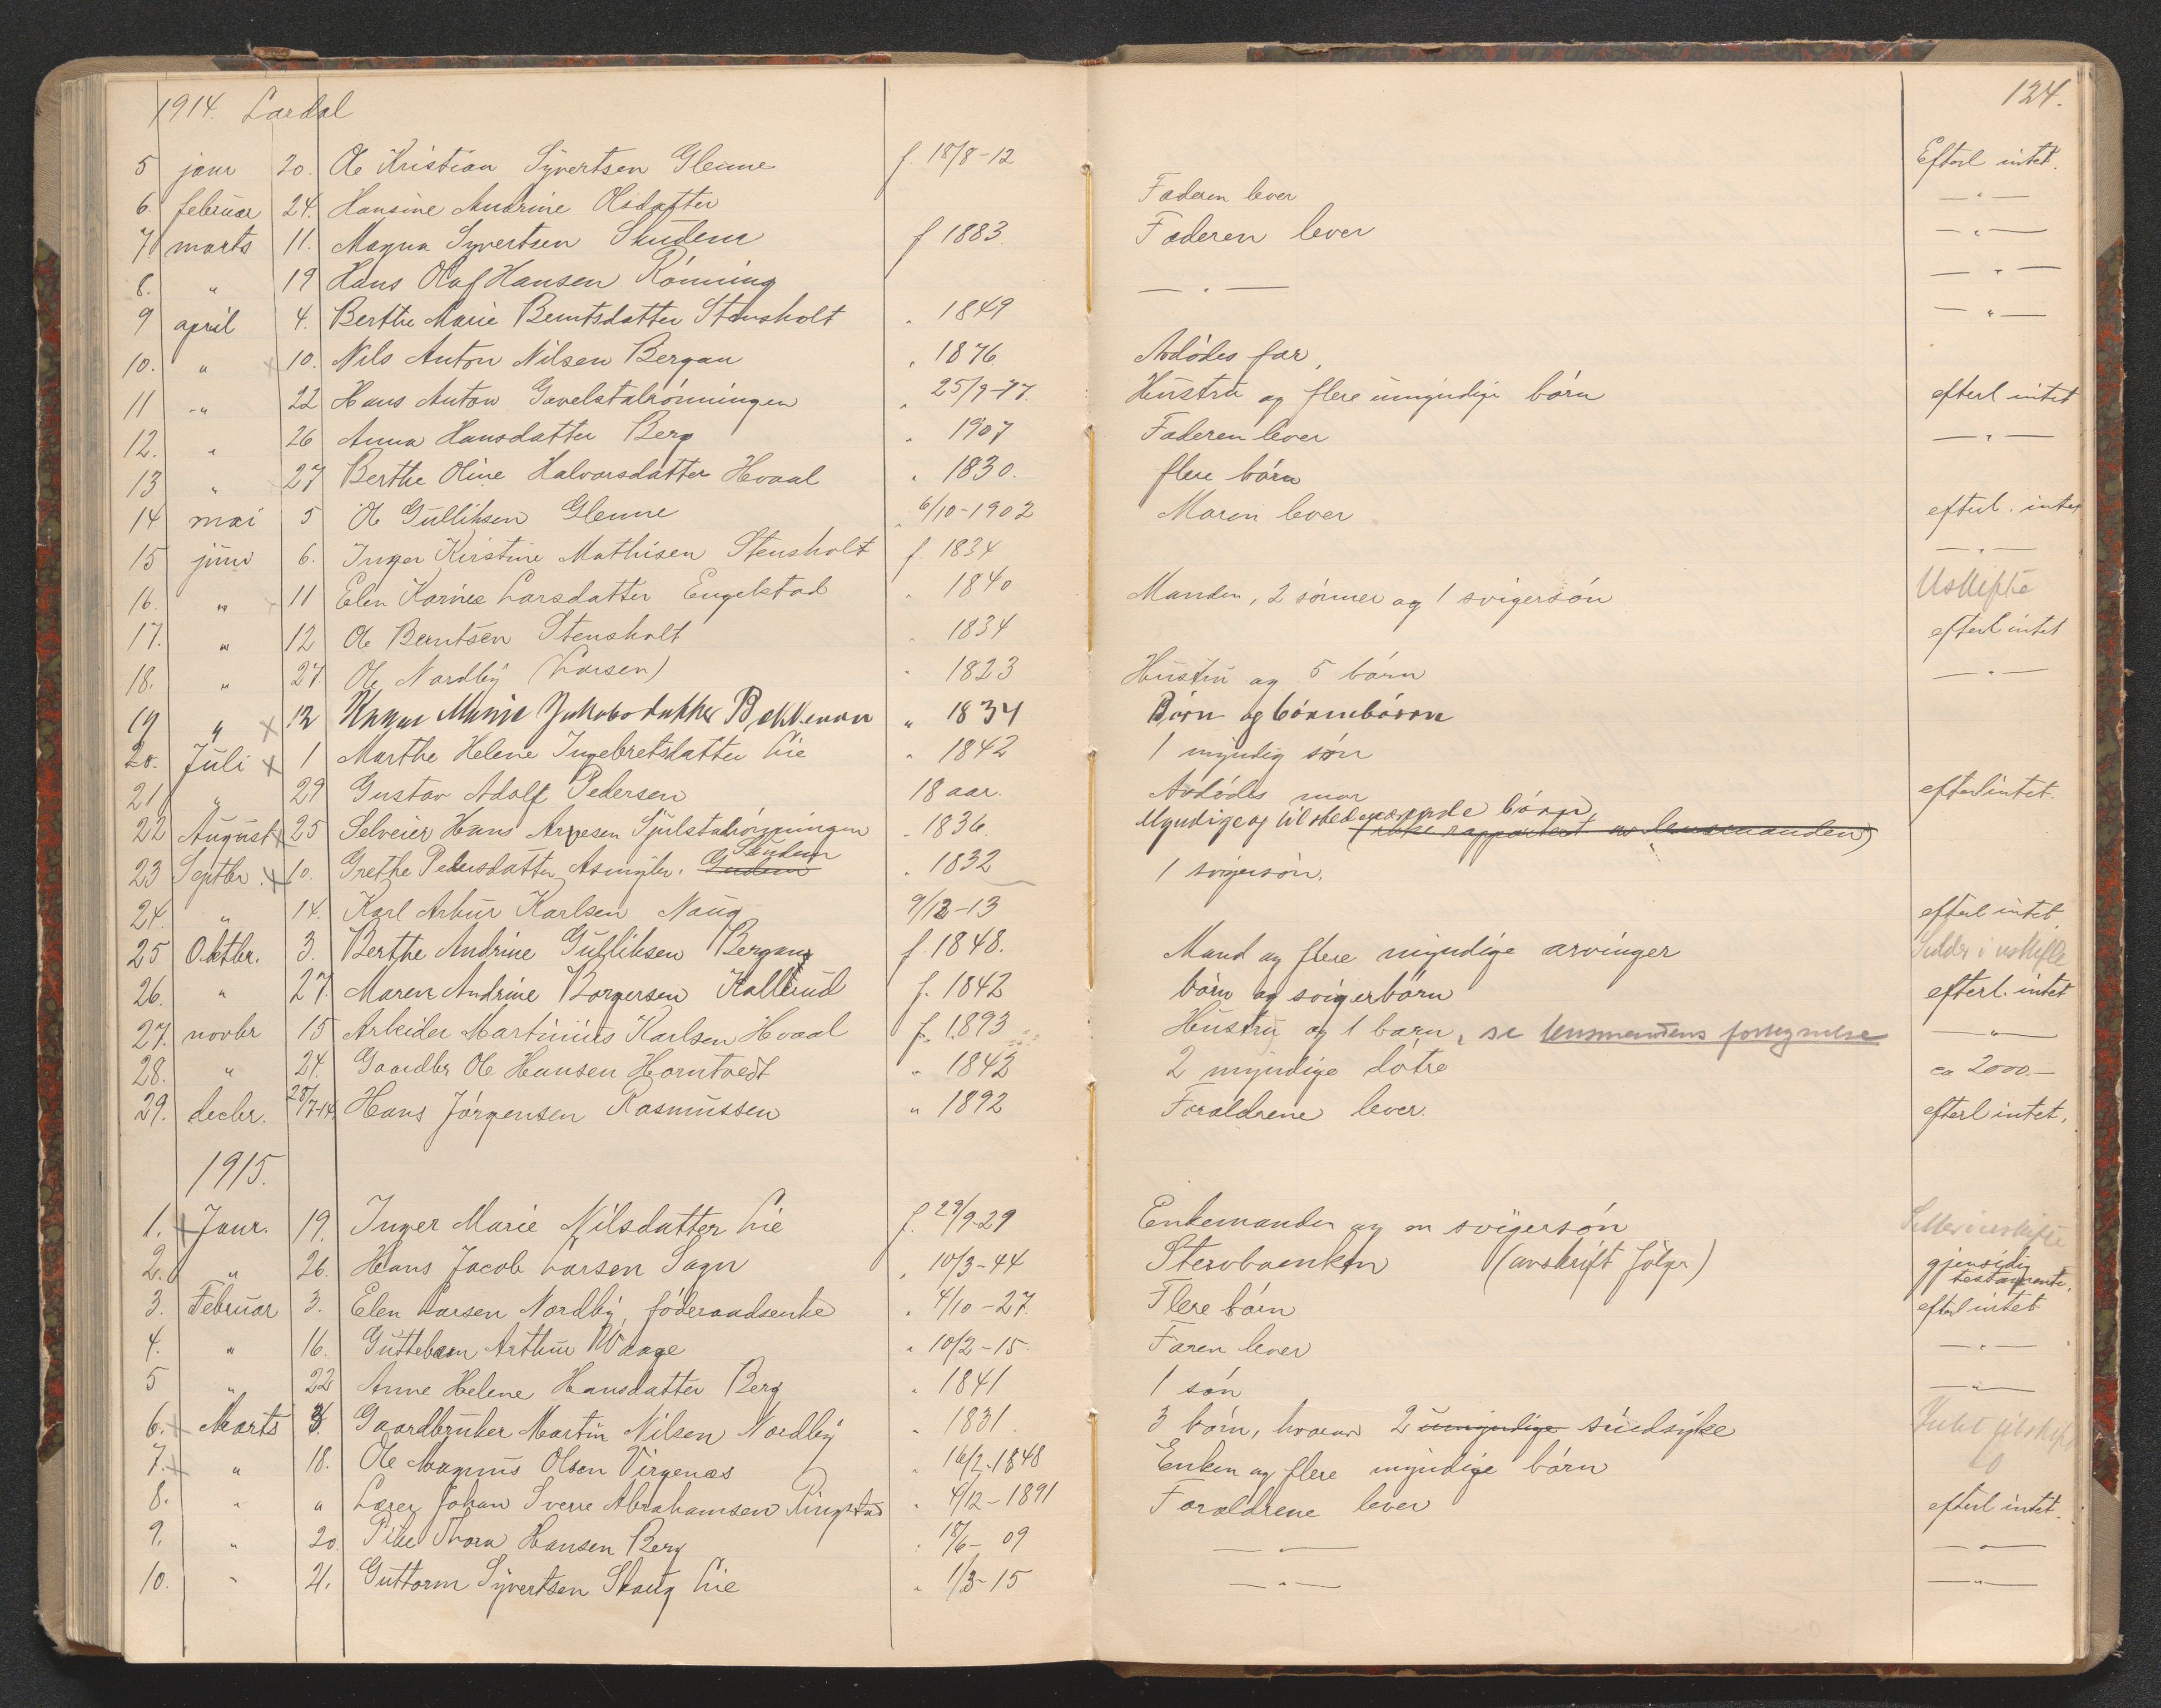 1914. Lardal
124.
5 janr 20. Ole Kristian Syvertsen Glenne f. 18/8-12 Efterl intet.
6. februar 24. Hansine Andrine Olsdatter Faderen lever — " —
7. marts 11. Magna Syvertsen Skudem f 1883 Faderen lever — " —
8. " 19 Hans Olaf Hansen Rönning — " — — " —
9 april 4. Berthe Marie Berntsdatter Stensholt " 1849 — " —
10. " x 10. Nils Anton Nilsen Bergan " 1876 Avdödes far,
11 " 22 Hans Anton Gavelstalrönningen " 25/9-77. Hustru og flere umyndige börn efterl intet
12. " 26 Anna Hansdatter Berg " 1907 Faderen lever — " —
13 " 27 Berthe Oline Halvorsdatter Hvaal " 1830. flere börn
14 mai 5 Ole Gulliksen Glenne " 6/10-1902 Moren lever efterl. intet
15 juni 6. Inger Kirstine Mathisen Stensholt f. 1834 — " —
16. " 11 Elen Karine Larsdatter Engelstad " 1840 Manden, 2 sönner og 1 svigersön Uskifte
17. " 12 Ole Berntsen Stensholt " 1834 efterl intet
18. " 27. Ole Nordby (Larsen) " 1823 Hustru og 5 börn — " —
19 " x 12 Maria Jakobsdatter Bakkenon " 1834 Börn og börnebörn
20. Juli x 1 Marthe Helene Ingebretsdatter Lie " 1842 1 myndig sön
21 " 29 Gustav Adolf Pedersen 18 aar. Avdödes mor efterl intet.
22 August x 25 Selveier Hans Arvesen Sjulstadrönningen " 1836. Myndige og tilstedeværende börn, (ikke rapportert av lensmanden)
23 Septbr. x 10. Grethe Pedersdatter Asmyhr. Gudem Skudem " 1832 1 svigersön.
24. " 14. Karl Artur Karlsen Naug 9/12-13 efterl intet
25 Oktbr. 3. Berthe Andrine Gulliksen Bergan f. 1848. Mand og flere myndige arvinger Sidder i uskifte
26. " 27. Maren Andrine Borgersen Kallerud f. 1842 börn og svigerbörn efterl. intet
27. novbr 15 Arbeider Martinius Karlsen Hvaal f. 1893 Hustru og 1 barn, se lensmandens fortegnelse — " —
28. " 24. Gaardbr Ole Hansen Horntvedt " 1842 2 myndige dötre ca 2000.—
29. decbr. 28/7-14 Hans Jörgensen Rasmussen " 1892 Forældrene lever. efterl intet.
1915.
1. x Janr. 19. Inger Marie Nilsdatter Lie f. 29/9-29 Enkemanden og en svigersön
2. " 26. Hans Jacob Larsen Sagn " 10/3-44 Stervboenken (avskrift fölger) gjensidig testamente.
3. Februar 3. Elen Larsen Nordby, föderaadsenke " 4/10-27 Flere börn efterl intet
4. " 16. Guttebarn Arthur Waage " 10/2-15. Faren lever — " —
5 " 22 Anne Helene Hansdatter Berg " 1841 1 sön — " —
6. Marts 3. Gaardbruker Martin Nilsen Nordby " 1831. 3 börn, hvorav 2 umyndige sindsyke
7. " 18. Ole Magnus Olsen Virgenæs " 16/2-1848 Enken og flere myndige börn
8. " " Lærer Johan Sverre Abrahamsen Ringstad " 4/12-1891 Forældrene lever efterl intet.
9. " 20. Pike Thora Hansen Berg " 18/6-09 — " — — " —
10. " 21. Guttorm Syvertsen Skaug Lie " 1/3-15 — " — — " —